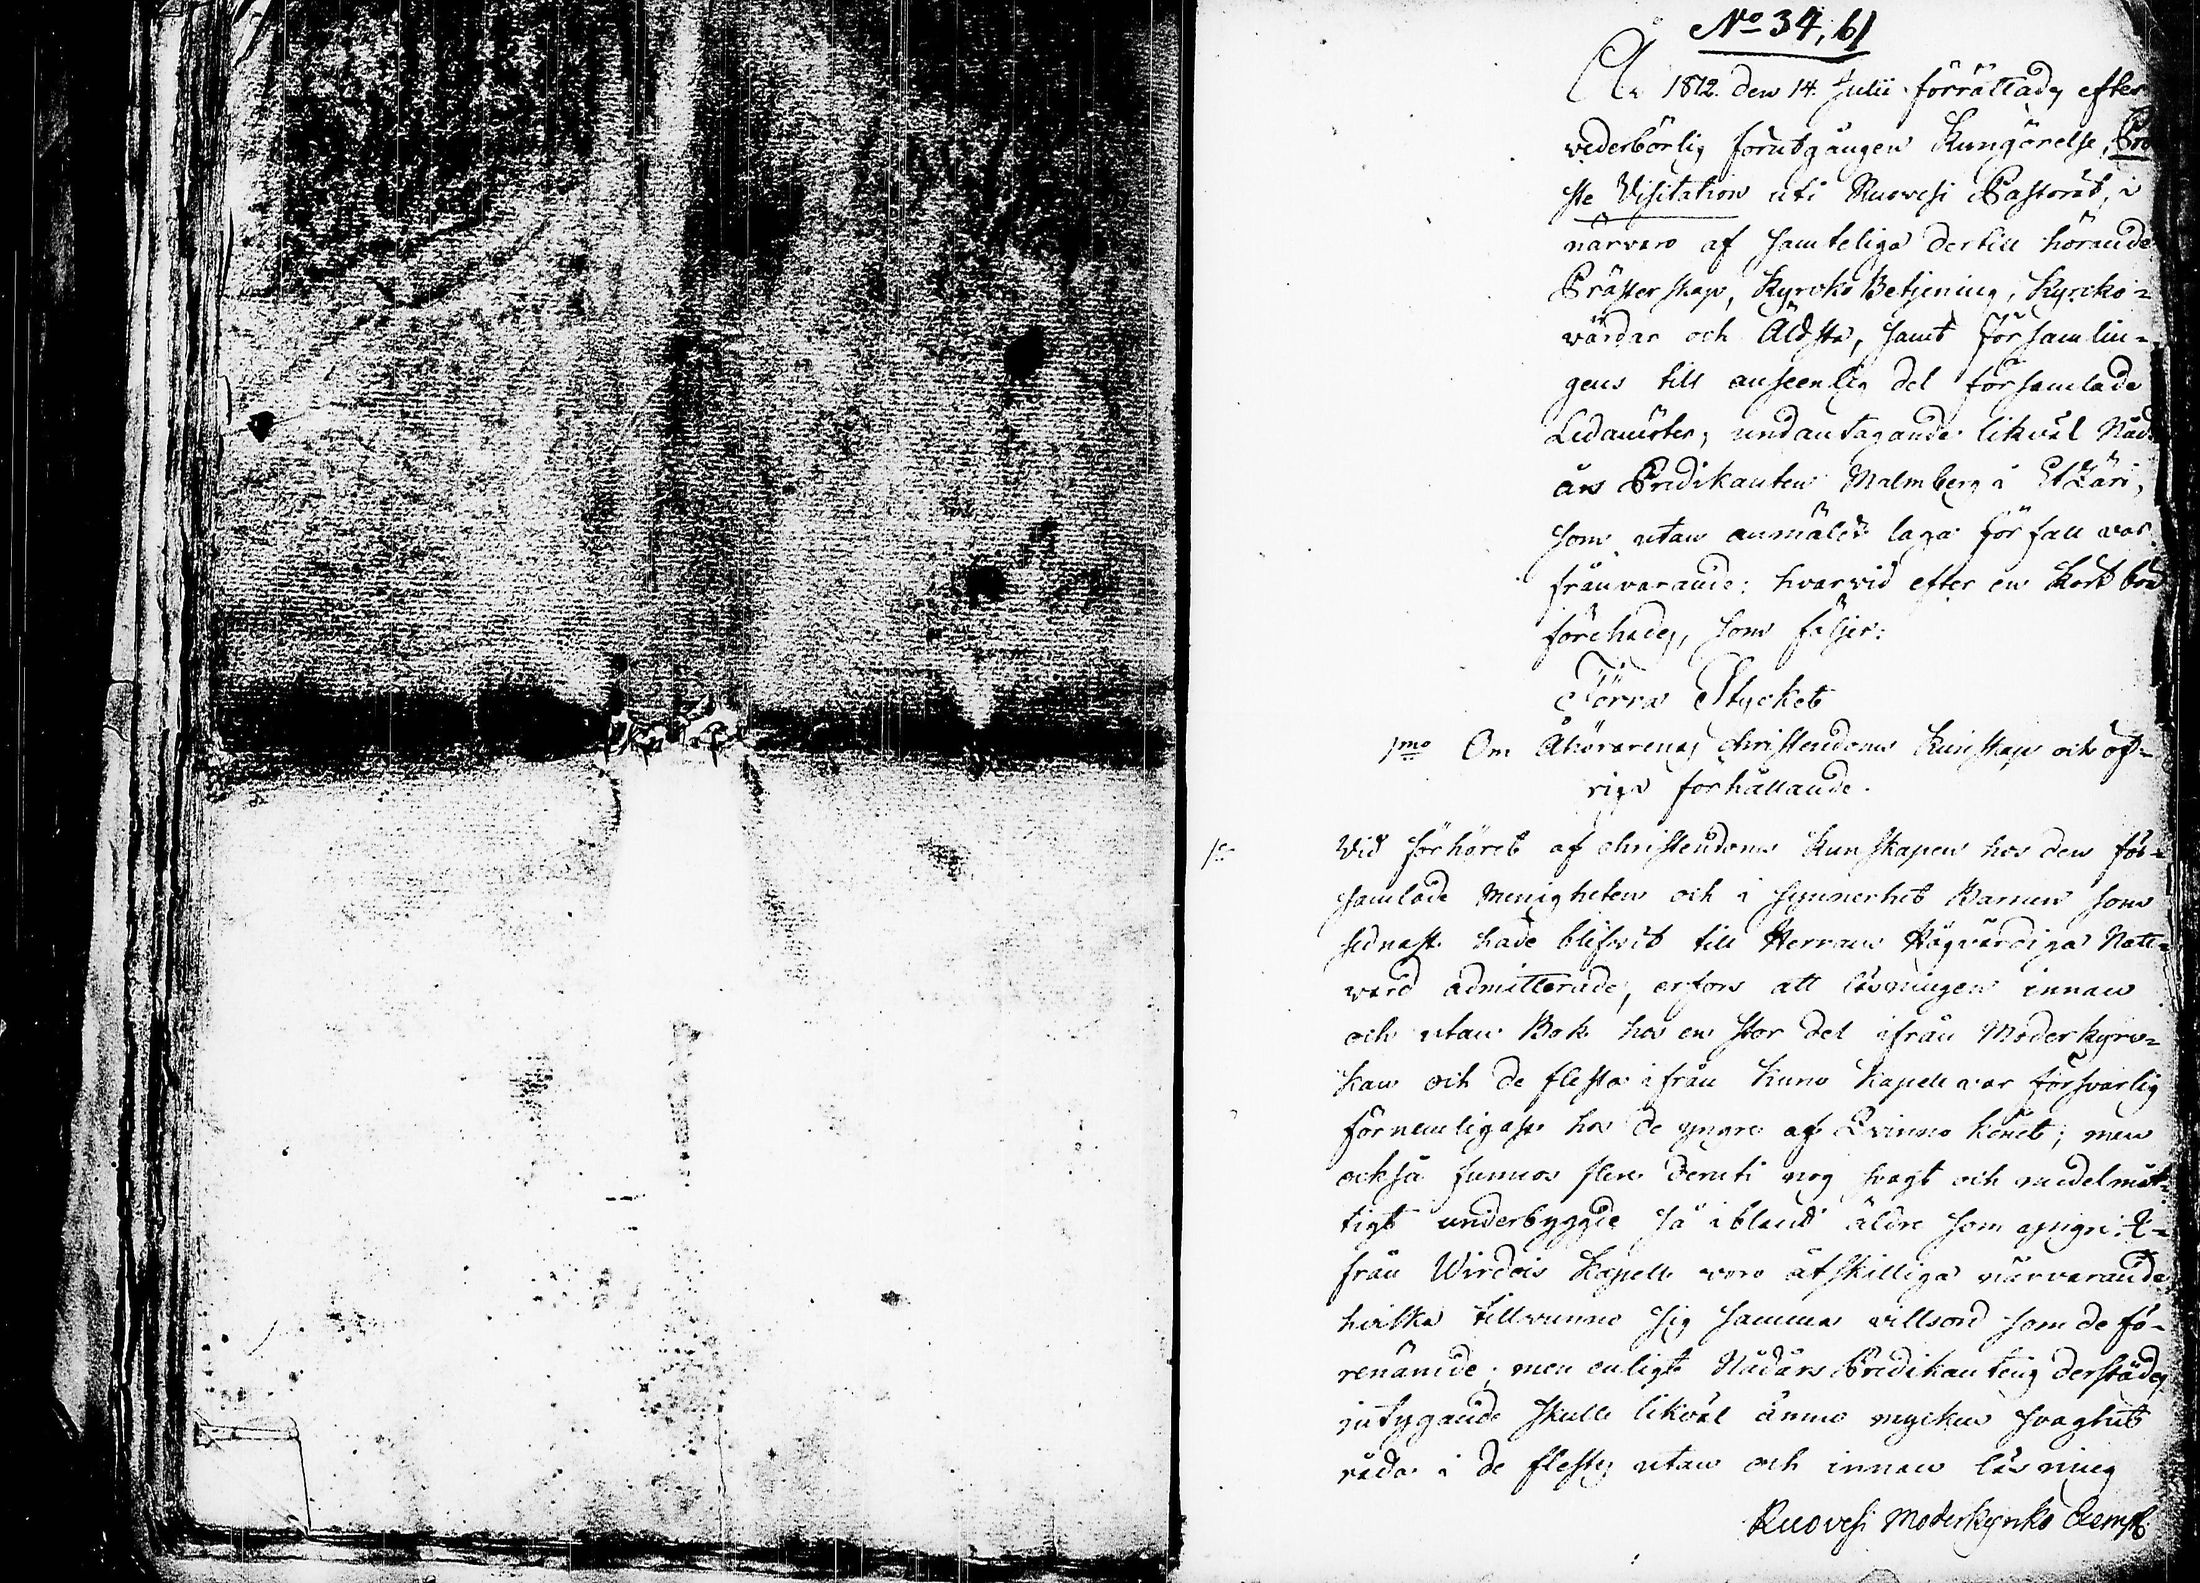 No 34, 61
År 1812. den 14. Julii förrättades efter
vederbörlig förutgången Kungörelse, Pro
ste Visitation uti Ruovesi Pastorat, i
närvaro af samteliga dertill hörande
Prästerskap, Kyrko Betjening, Kyrcko=
värdar och Äldsta, samt församlin=
gens till anseenlig del församlade
Ledamöter, undantagande likväl Nåd
års Predikanten Malmberg i Etzäri,
som utan anmäldt laga förfall var
frånvarande; hvarvid efter en kort bön
förehades, som följer:
Förra Stycket
1mo Om Åhörarenas christendoms kunskap och öf=
riga förhållande.
1o
Vid förhöret af christendoms kunskapen hos den för=
samlade menigheten och i synnerhet Barnen som
sednast hade blifvit till Herrans Högvärdiga Natt=
vard admitterade, erfors att läsningen innan
och utan Bok hos en stor del ifrån Moderkyrc=
kan och de flesta ifrån Kuru Kapell var försvarlig
förnemligast hos de yngre af Qvinno könet; men
också funnos flere deruti nog svagt och medelmåt=
tigt underbyggde så ibland äldre som yngre. I=
från Wirdois Kapell voro åtskilliga närvarande,
hvilka tillvunno sig samma vittsord som de fö=
renämde; men enligt Nådårs Predikantens derstädes
intygande skulle likväl ännu mycken svaghet
råda i de flestes utan och innan läsning
Ruovesi Moderkyrko Exempl.